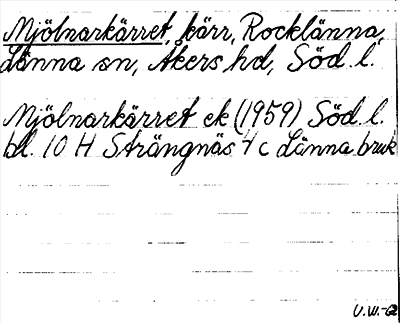 Mjölnarkärret, kärr, Rocklänna,
Länna sn, Åkers hd, Söd. l.
Mjölnarkärret ek (1959) Söd. l.
bl. 10 H Strängnäs 7 c Länna bruk
U.W.-G